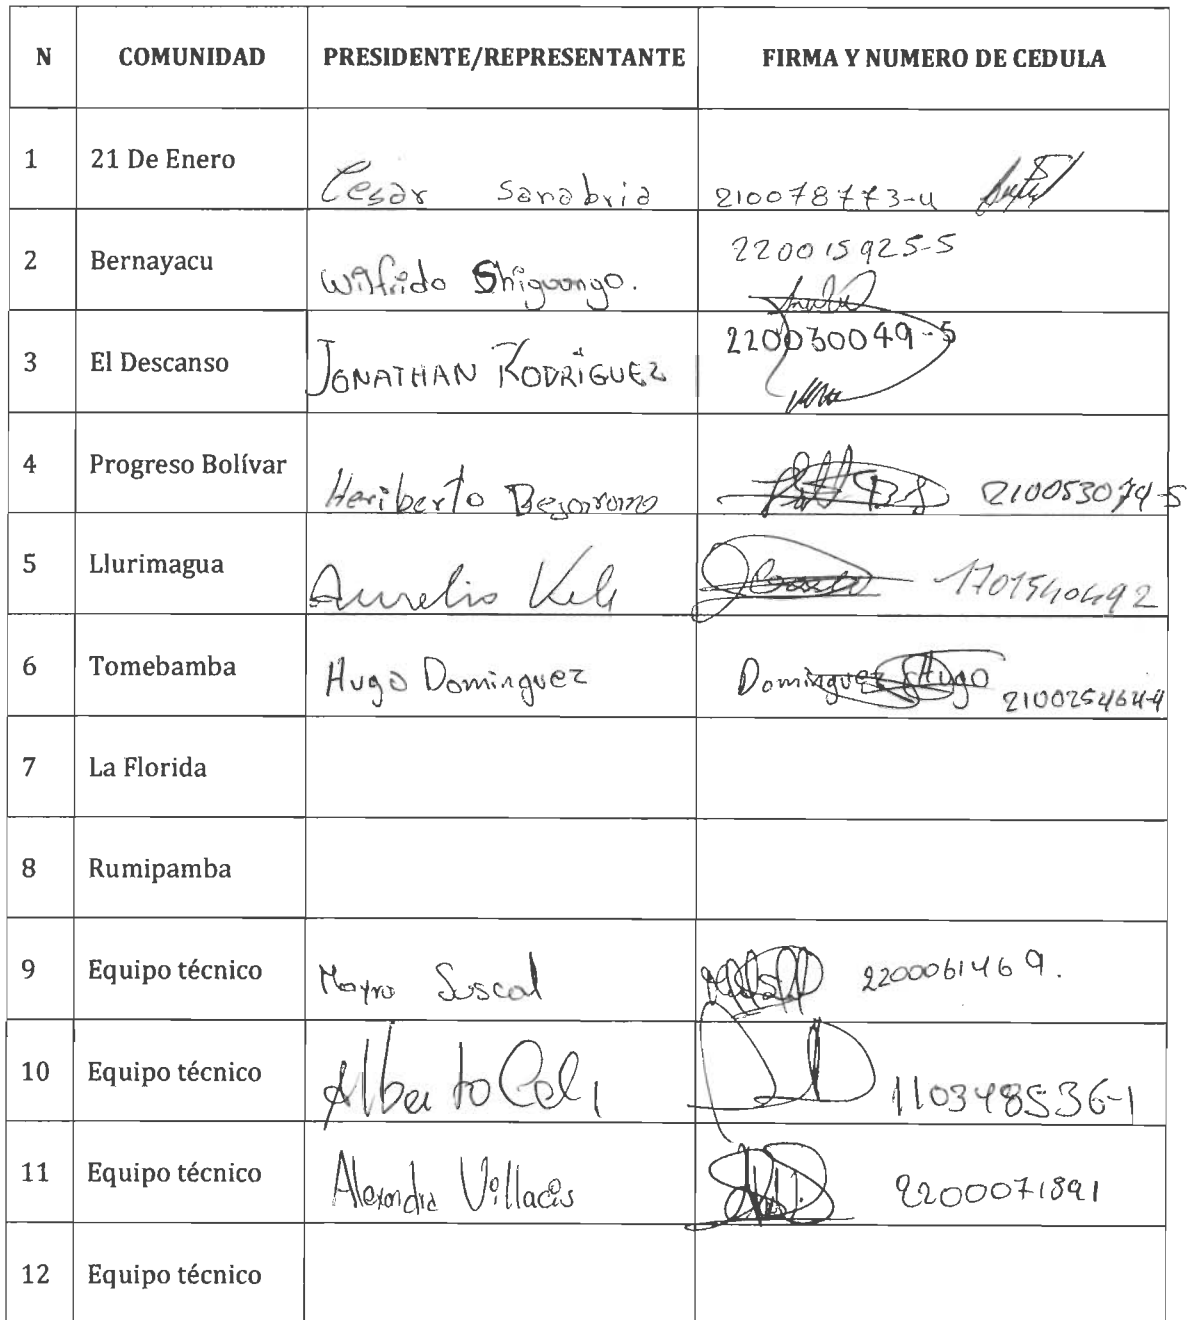 N COMUNIDAD PRESIDENTE/REPRESENTANTE FIRMA Y NUMERO DE CEDULA
1 21 De Enero Cesar Sanabria 210078773-4
2 Bernayacu Wilfrido Shiguango. 220015925-5
3 El Descanso JONATHAN RODRIGUEZ 220030049-5
4 Progreso Bolívar Heriberto 210053074-5
5 Llurimagua Aurelio 1701540492
6 Tomebamba Hugo Dominguez Dominguez Hugo 210025464-4
7 La Florida
8 Rumipamba
9 Equipo técnico Mayra Suscal 2200061469.
10 Equipo técnico Alberto Celi 110348536-1
11 Equipo técnico Alexandra Villacis 2200071891
12 Equipo técnico